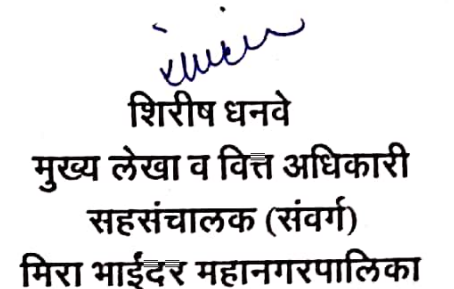 शिरीष धनवे
मुख्य लेखा व वित्त अधिकारी
सहसंचालक (संवर्ग)
मिरा भाईंदर महानगरपालिका